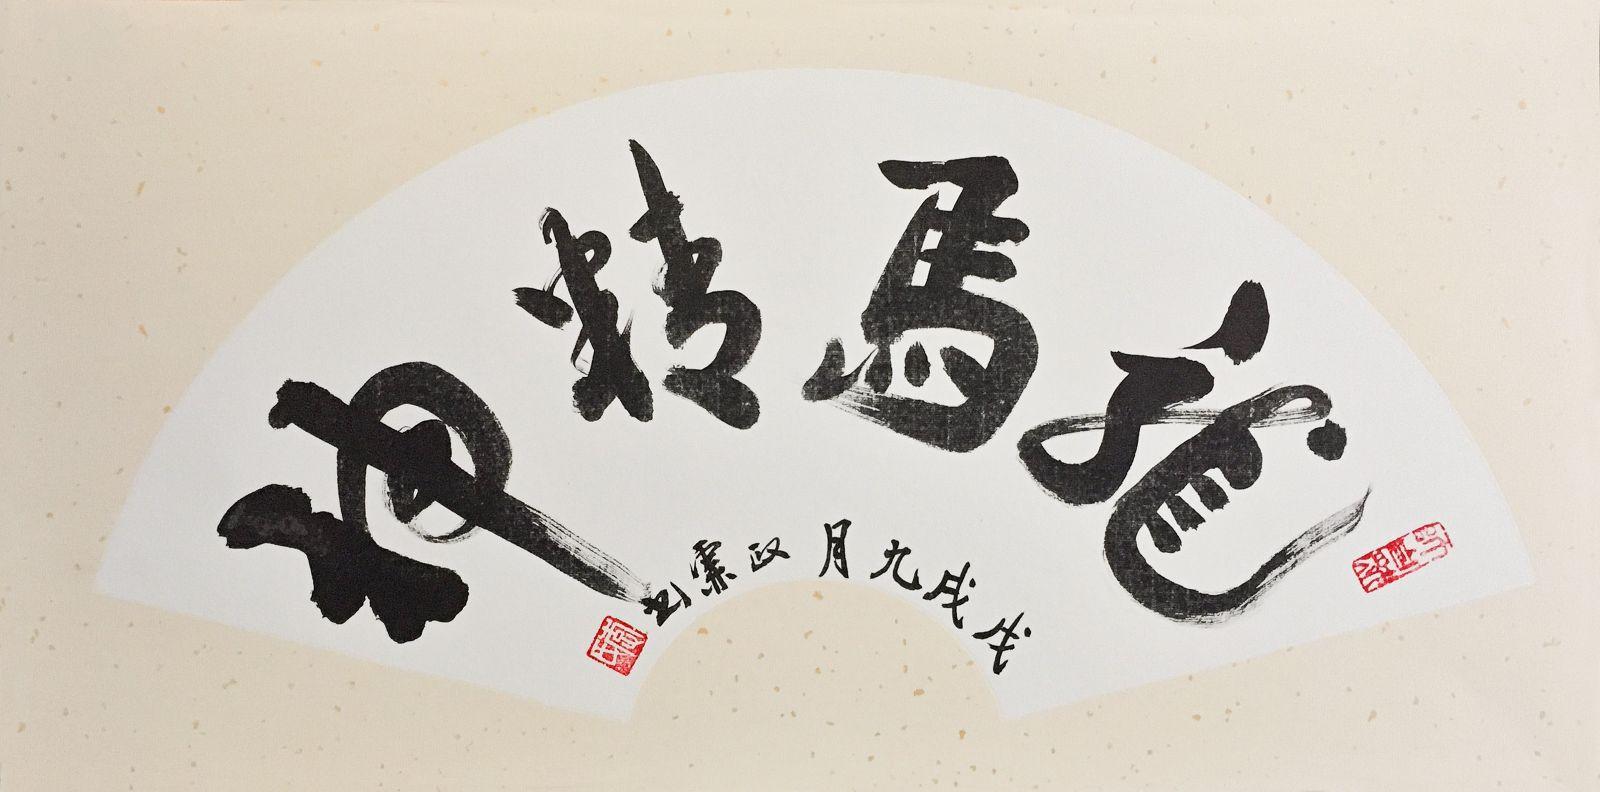 龍馬精神
戊戌九月政霖书